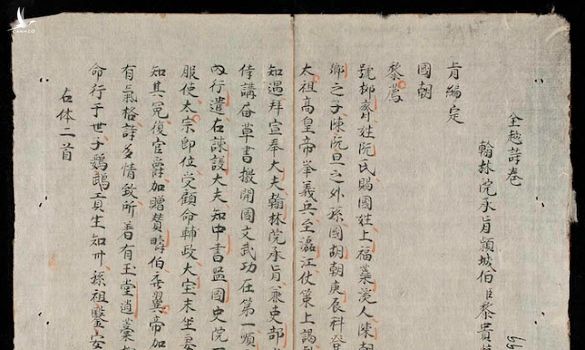 CANHCO
全越詩卷
翰林院承㫖頴城伯臣黎貴
㫖編定
國朝
黎廌
號抑齋姓阮氏賜國姓上福蘂溪人陳朝
鄉之子陳元旦之外孫國胡朝庚辰科登
太祖高皇帝举義兵至瀘江仗策上謁
知遇拜宣奉大夫翰林院承㫖兼吏部
侍講 草書檄開國文武功在第一順
內行遣右諫議大夫知中書監國史院
服使太宗即位受顧命輔政大宗末坐妻
知其冤復官爵加贈賛疇伯 翼帝加
有氣格詩多情致所着有玉堂 業
命行于世子鸚鵡 生知卅孫祖鑒安
古体二首